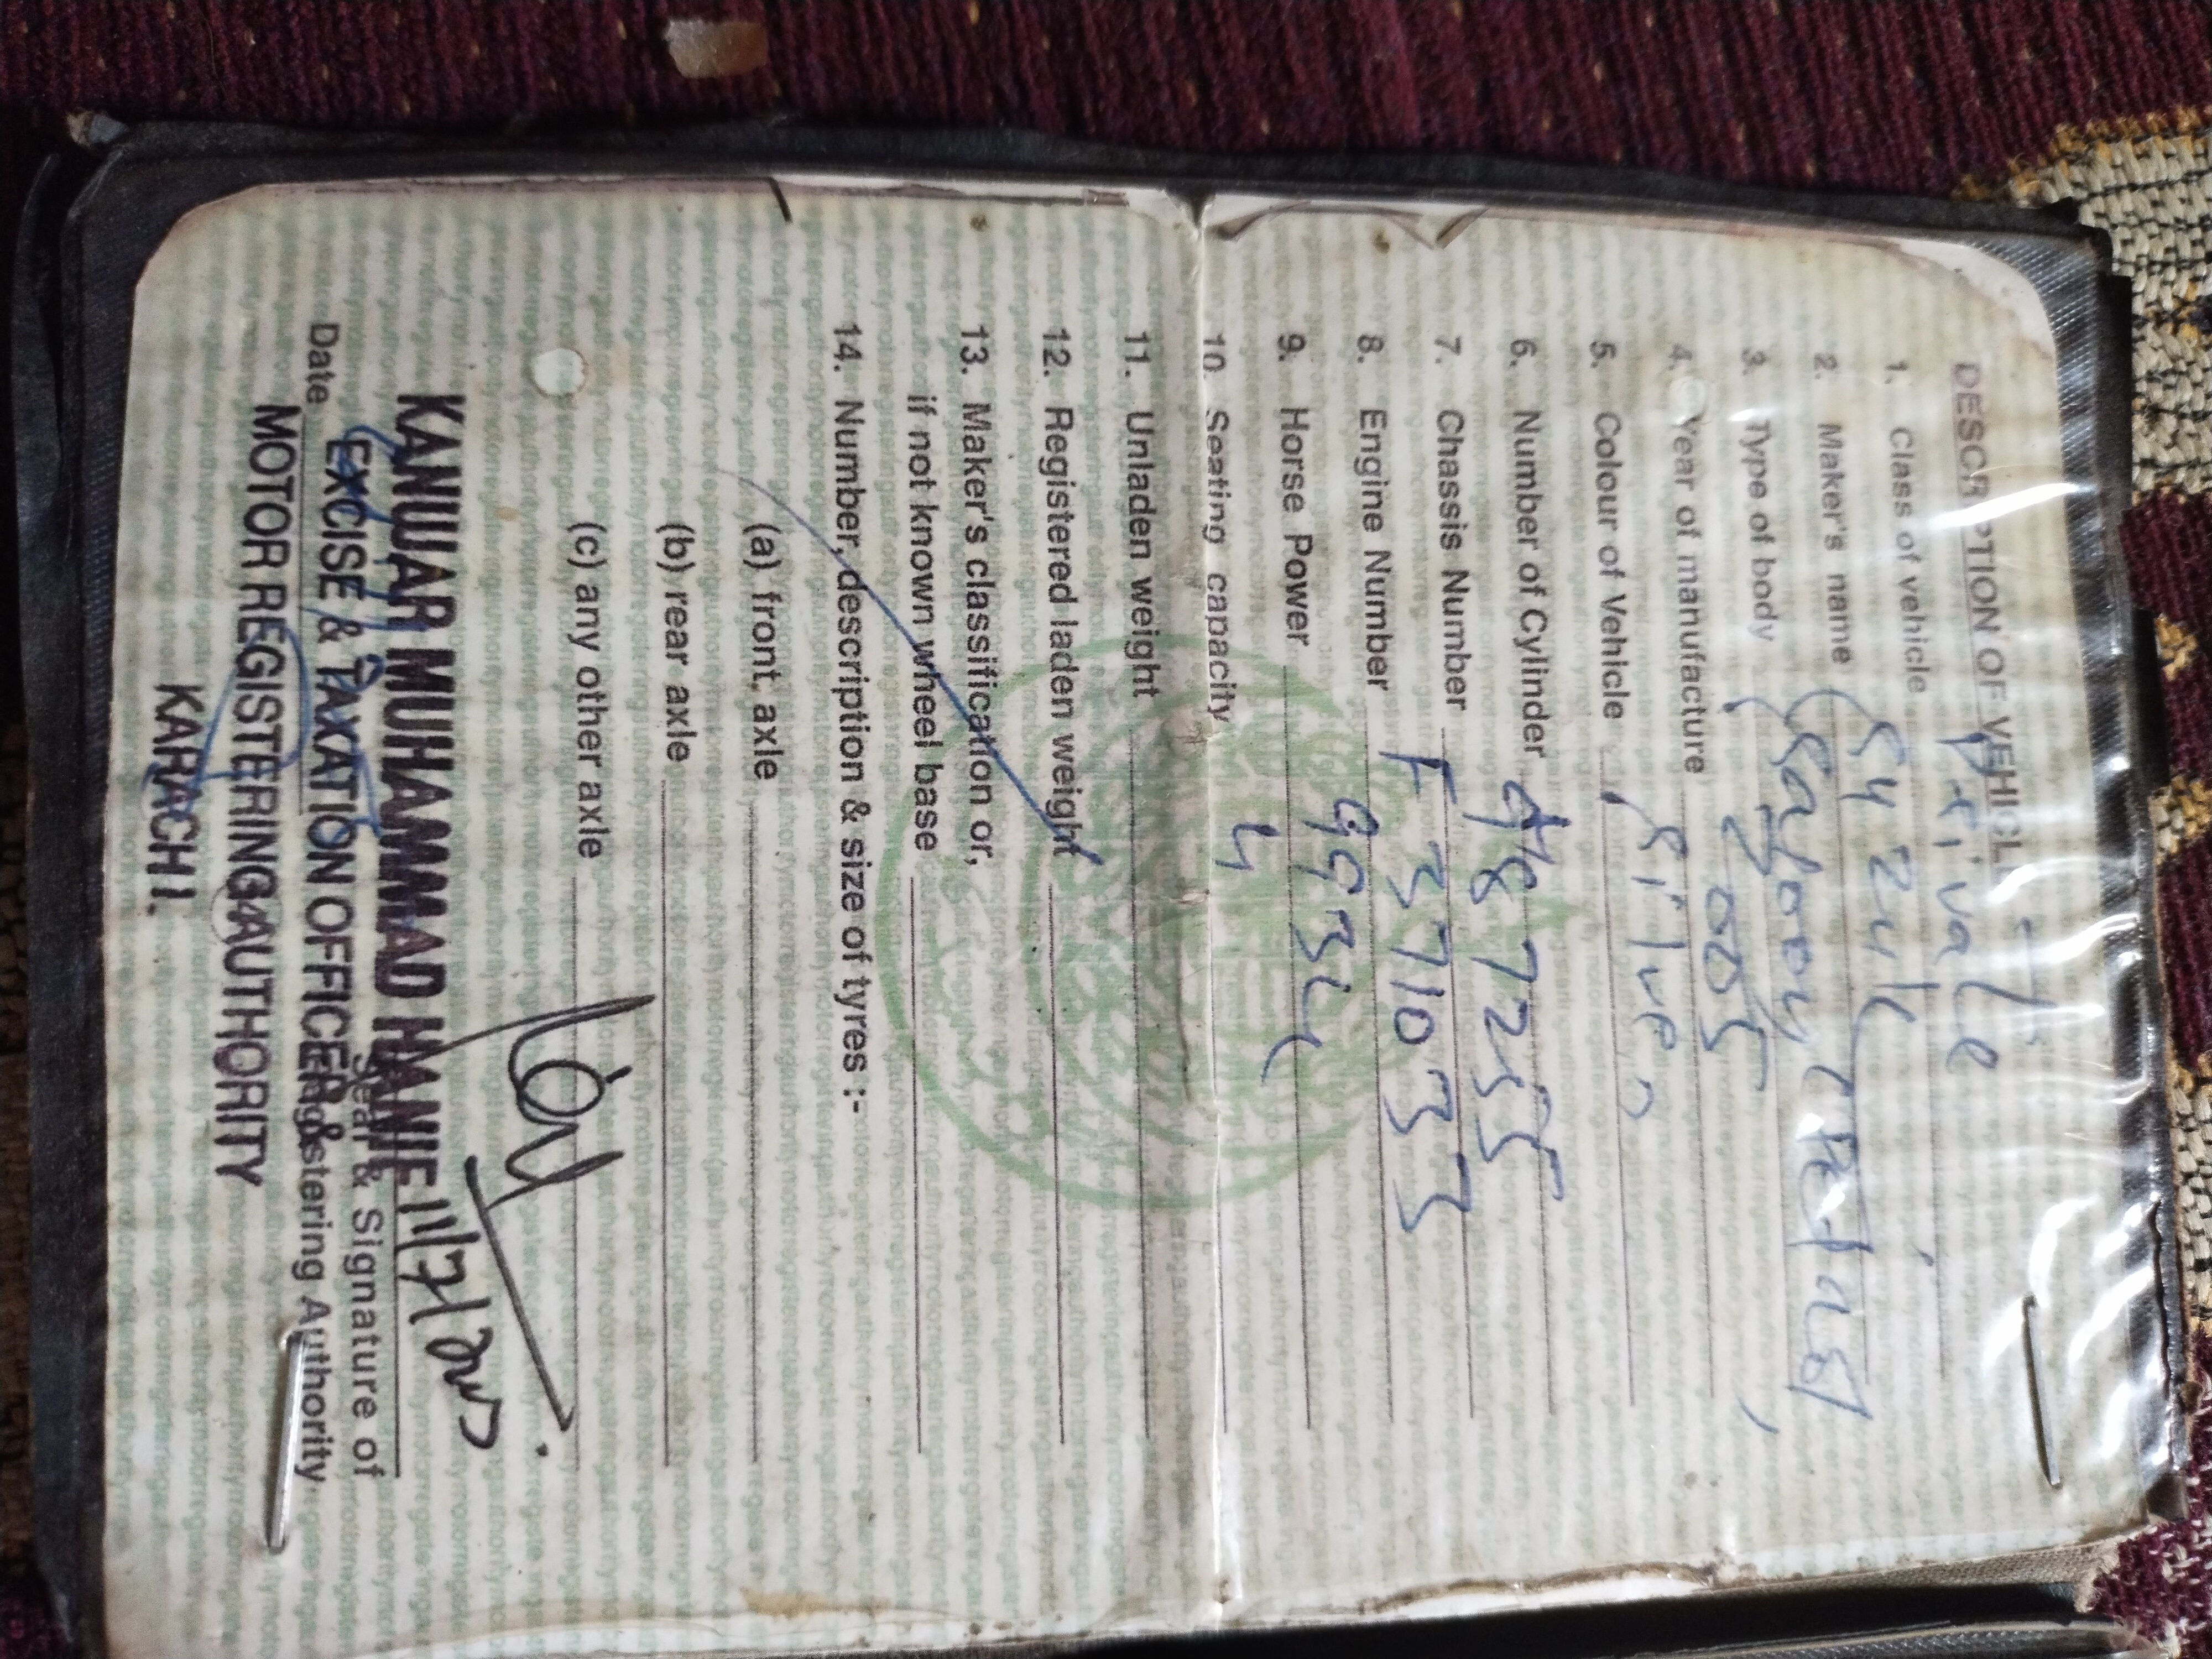 DESCRIPTION OF VEHICLE
1. Class of vehicle Private
2. Maker's name Suzuki
3. Type of body Saloon
4. Year of manufacture 2005
5. Colour of Vehicle Silver
6. Number of Cylinder 4
7. Chassis Number 487255
8. Engine Number F371033
9. Horse Power 993cc
10. Seating capacity 4
11. Unladen weight
12. Registered laden weight
13. Maker's classification or,
if not known wheel base
14. Number, description & size of tyres :-
(a) front axle
(b) rear axle
(c) any other axle
KANWAR MUHAMMAD HANIF
Seal & Signature of
Date Registering Authority
EXCISE & TAXATION OFFICER &
MOTOR REGISTERING AUTHORITY
KARACHI.